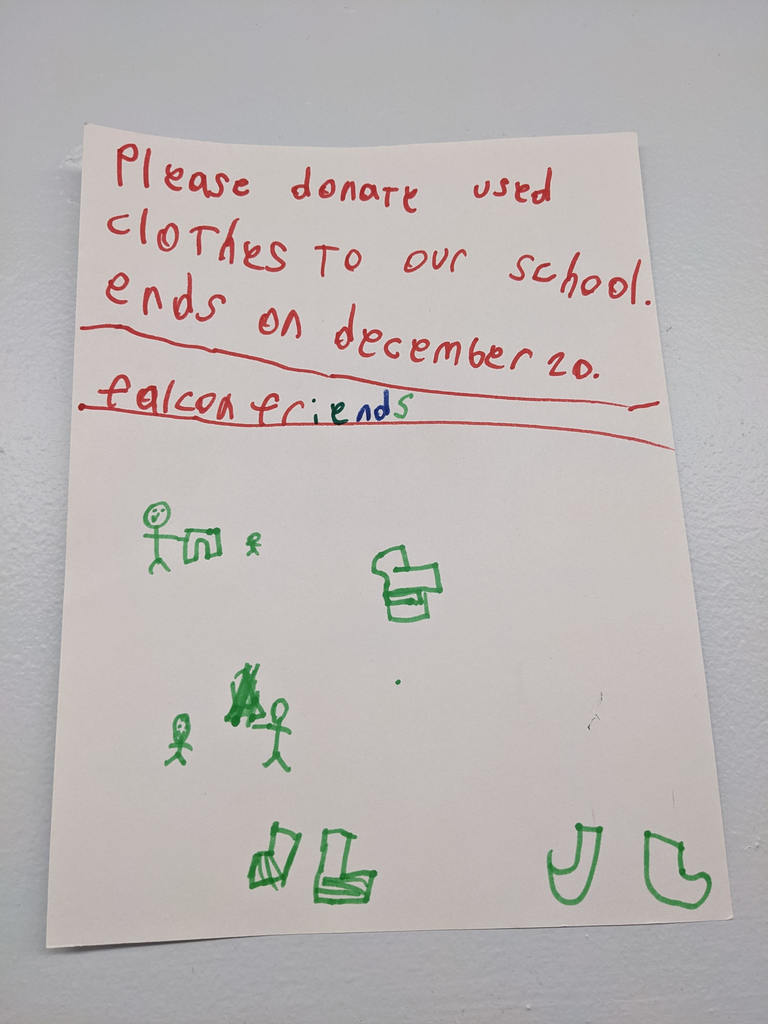 Please donate used
clothes to our school.
ends on december 20.
falcon friends